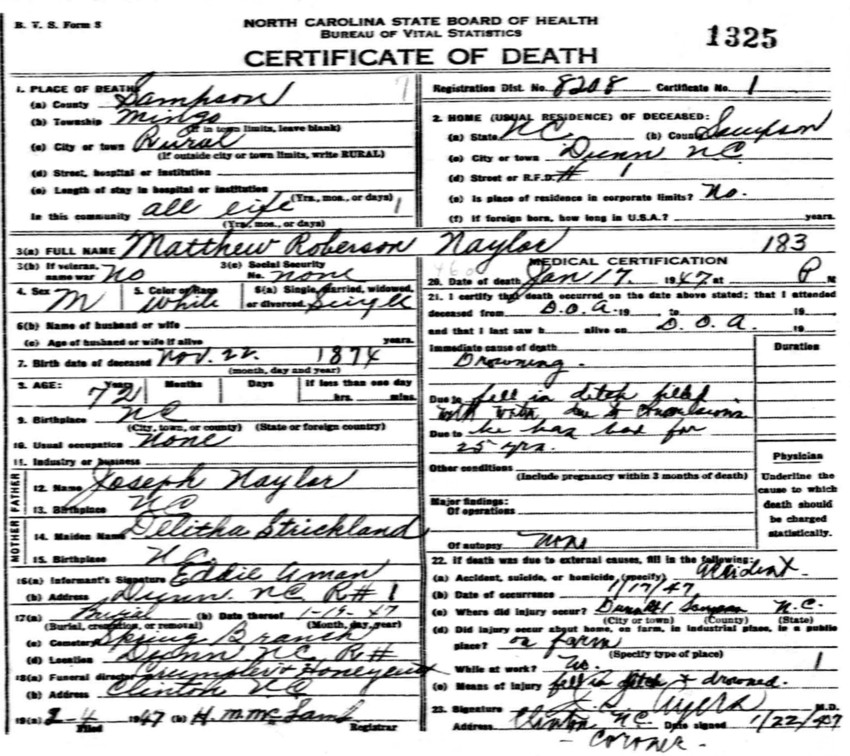 B. V. S. Form 8
NORTH CAROLINA STATE BOARD OF HEALTH
BUREAU OF VITAL STATISTICS
CERTIFICATE OF DEATH
1325
1. PLACE OF DEATH
(a) County Sampson
(b) Township Mingo
(If in town limits, leave blank)
(c) City or town Rural
(If outside city or town limits, write RURAL)
(d) Street, hospital or institution
(e) Length of stay in hospital or institution
(Yrs., mos., or days)
In this community all life
(Yrs., mos., or days)
Registration Dist. No. 8208 Certificate No. 1
2. HOME (USUAL RESIDENCE) OF DECEASED:
(a) State NC (b) County Sampson
(c) City or town Dunn NC
(d) Street or R.F.D. # 1
(e) Is place of residence in corporate limits? No.
(f) If foreign born, how long in U.S.A.? years.
3(a) FULL NAME Matthew Roberson Naylor 183
3(b) If veteran, name war No
3(c) Social Security No. none
4. Sex M
5. Color or Race White
6(a) Single, married, widowed, or divorced Single
6(b) Name of husband or wife
(c) Age of husband or wife if alive years.
7. Birth date of deceased Nov. 22 1874
(month, day and year)
8. AGE: Years 72 Months Days If less than one day hrs. mins.
9. Birthplace NC
(City, town, or county) (State or foreign country)
10. Usual occupation None
11. Industry or business
FATHER
12. Name Joseph Naylor
13. Birthplace NC
MOTHER
14. Maiden Name Delitha Strickland
15. Birthplace N.C.
16(a) Informant's Signature Eddie Aman
(b) Address Dunn NC R#1
17(a) Burial (b) Date thereof 1-19-47
(Burial, cremation, or removal) (Month, day, year)
(c) Cemetery Spring Branch
(d) Location Dunn NC R#
18(a) Funeral director Crumpler & Honeycutt
(b) Address Clinton NC
19(a) 2-4 1947 (b) H. M. McLamb
Filed Registrar
MEDICAL CERTIFICATION
20. Date of death Jan 17 1947 at P M
21. I certify that death occurred on the date above stated; that I attended
deceased from D.O.A. 19 to 19
and that I last saw h alive on D.O.A. 19
Immediate cause of death
Drowning.
Duration
Due to fell in ditch filled
with water due to convulsions
Due to he has had for
25 yrs.
Other conditions
(Include pregnancy within 3 months of death)
Major findings:
Of operations
Of autopsy none
Physician
Underline the
cause to which
death should
be charged
statistically.
22. If death was due to external causes, fill in the following:
(a) Accident, suicide, or homicide (specify) Accident.
(b) Date of occurrence 1/17/47
(c) Where did injury occur? Dunn #1 Sampson N.C.
(City or town) (County) (State)
(d) Did injury occur about home, on farm, in industrial place, in a public
place? on farm
(Specify type of place)
While at work? No. 1
(e) Means of injury fell in ditch & drowned.
23. Signature Ayers M.D.
Address Clinton N.C. Date signed 1/22/47
- Coroner -